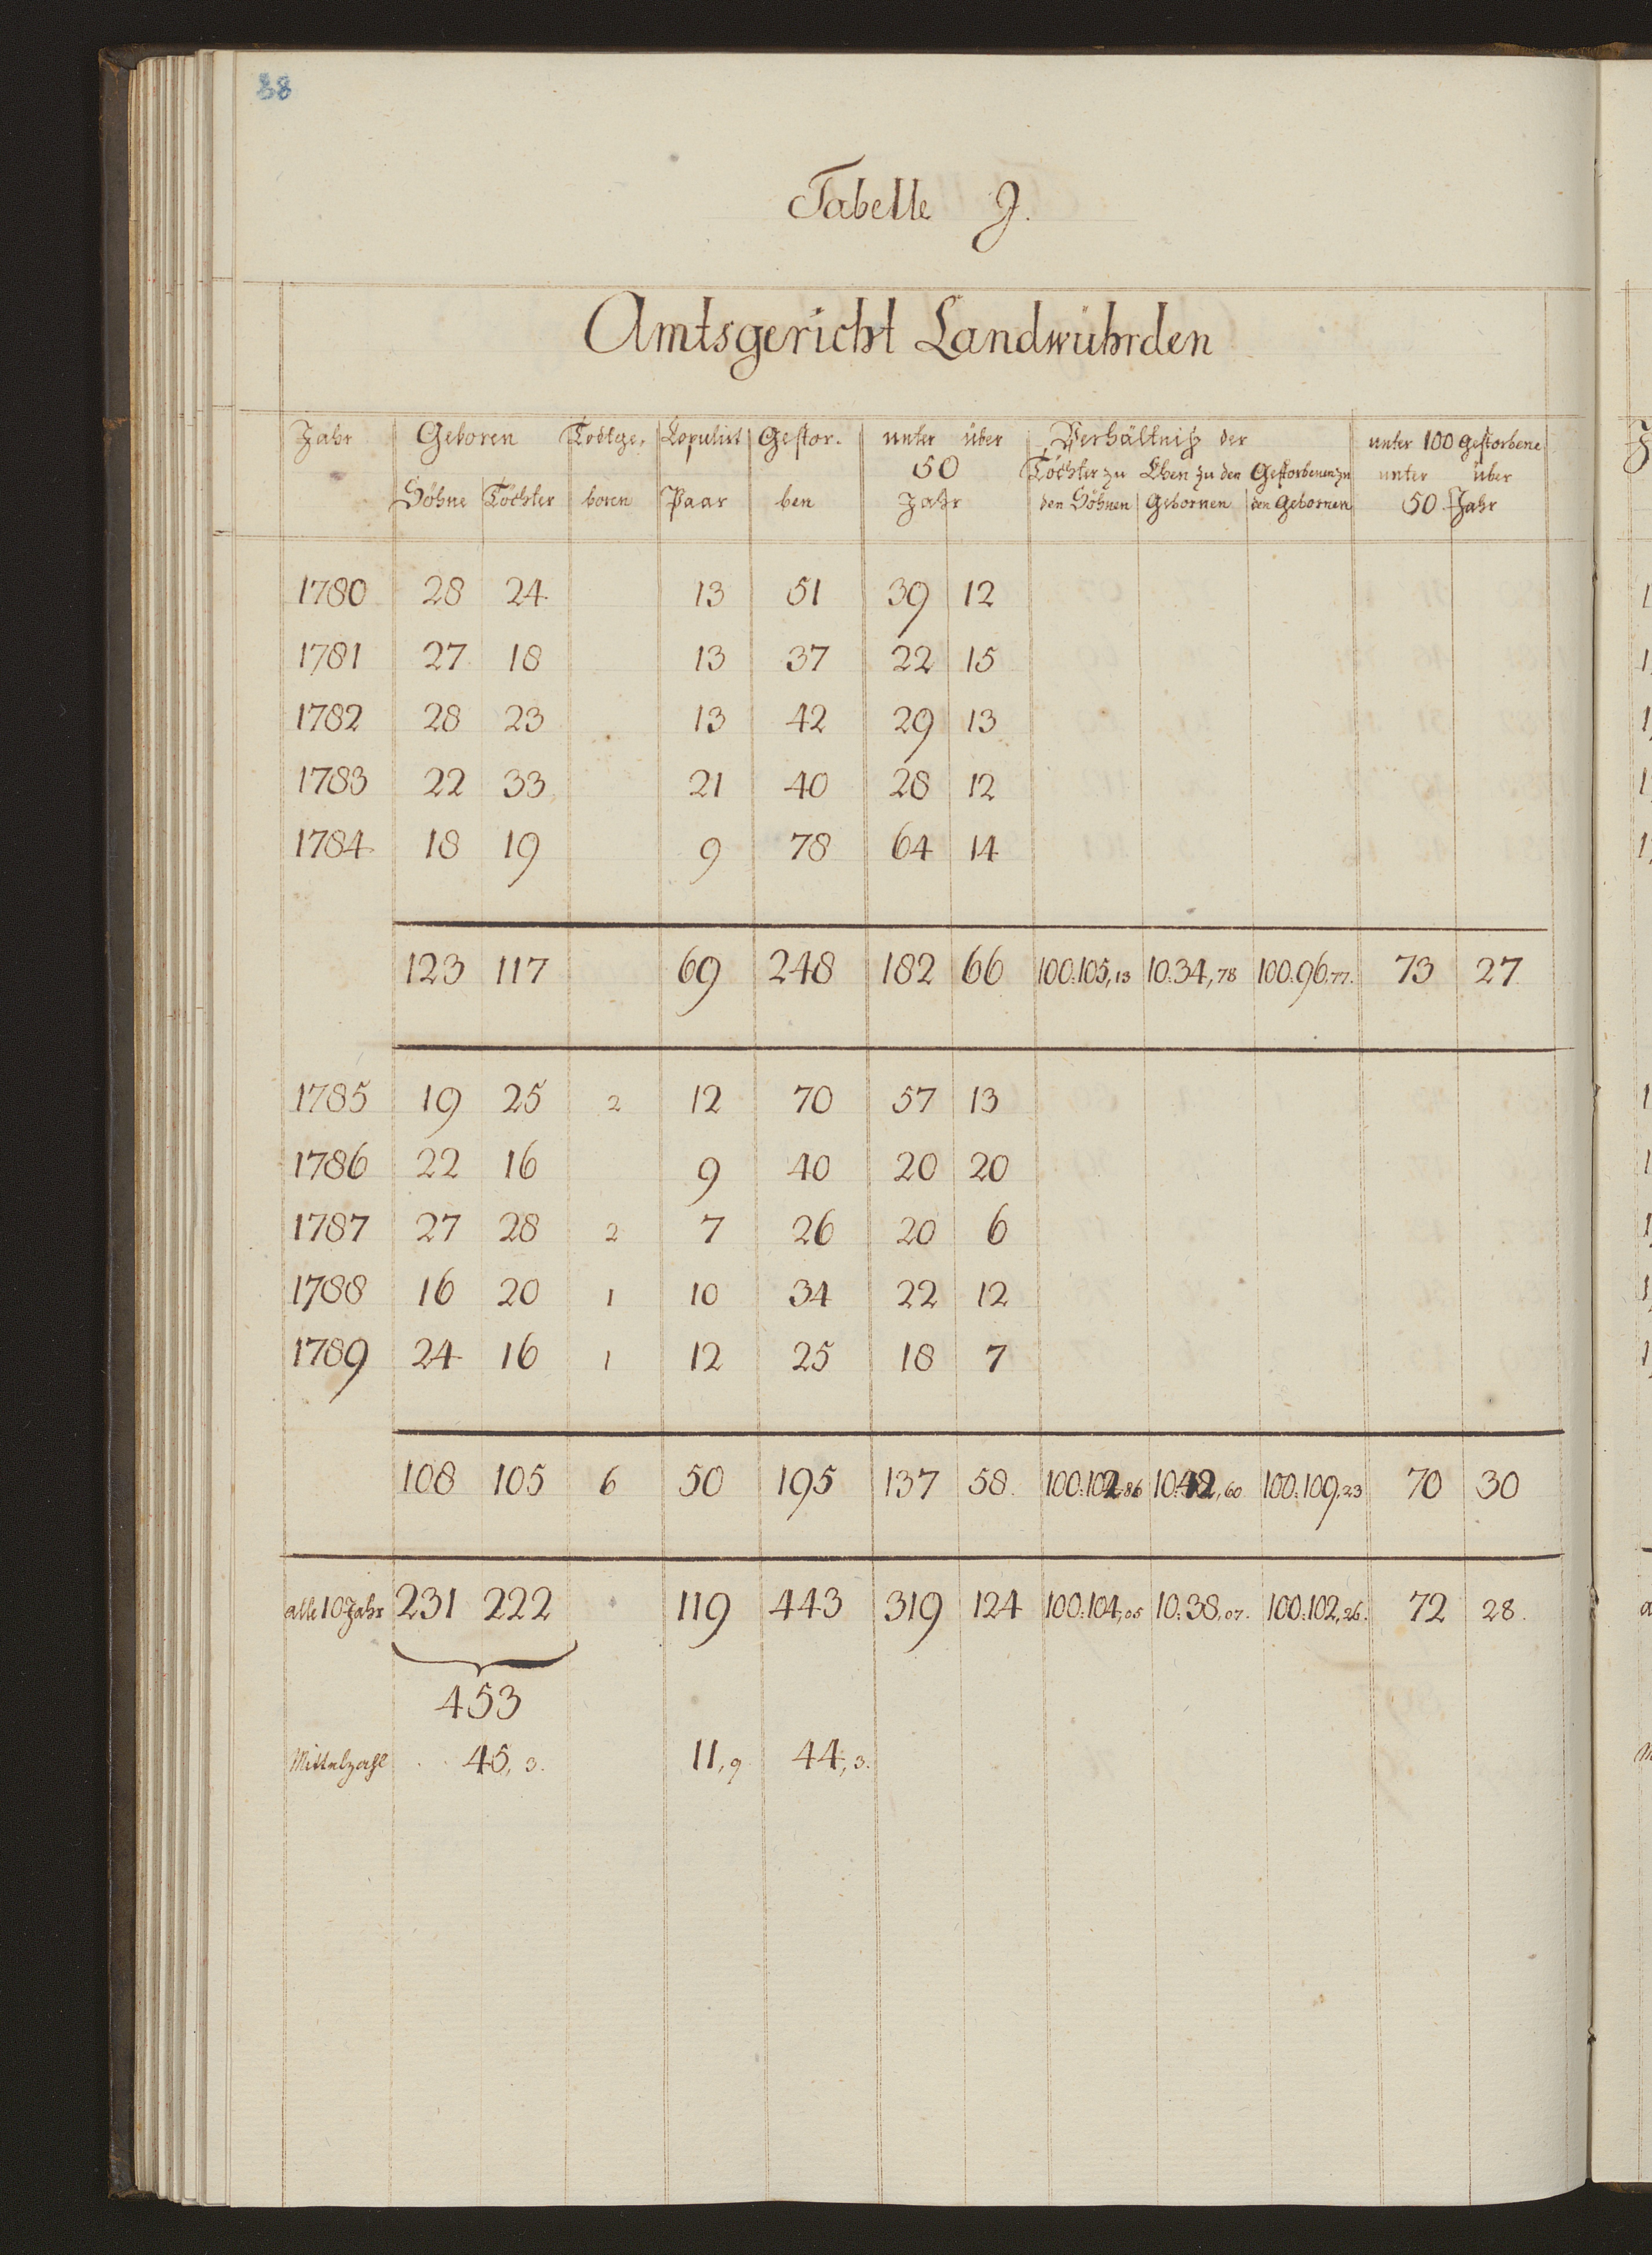 38
Tabelle J.
Amtsgericht Landwührden
Jahr Geboren Todtge, Copulirt Gestor. unter über Verhältniß der unter 100 gestorbene
50 Töchter zu Ehen zu den Gestorbenen zu unter über
Söhne Töchter boren Paar ben Jahr den Söhnen Gebornen den Gebornen 50 Jahr
1780 28 24 13 51 39 12
1781 27 18 13 37 22 15
1782 28 23 13 42 29 13
1783 22 33 21 40 28 12
1784 18 19 9 78 64 14
123 117 69 248 182 66 100:105,13 10:34,78 100:96,77. 73 27
1785 19 25 2 12 70 57 13
1786 22 16 9 40 20 20
1787 27 28 2 7 26 20 6
1788 16 20 1 10 34 22 12
1789 24 16 1 12 25 18 7
108 105 6 50 195 137 58. 100:102,86 10:42,60 100:109,23 70 30
alle 10 Jahr 231 222 119 443 319 124 100:104,05 10:38,07. 100:102,26. 72 28.
453
Mittelzahl 45,3. 11,9 44,3.